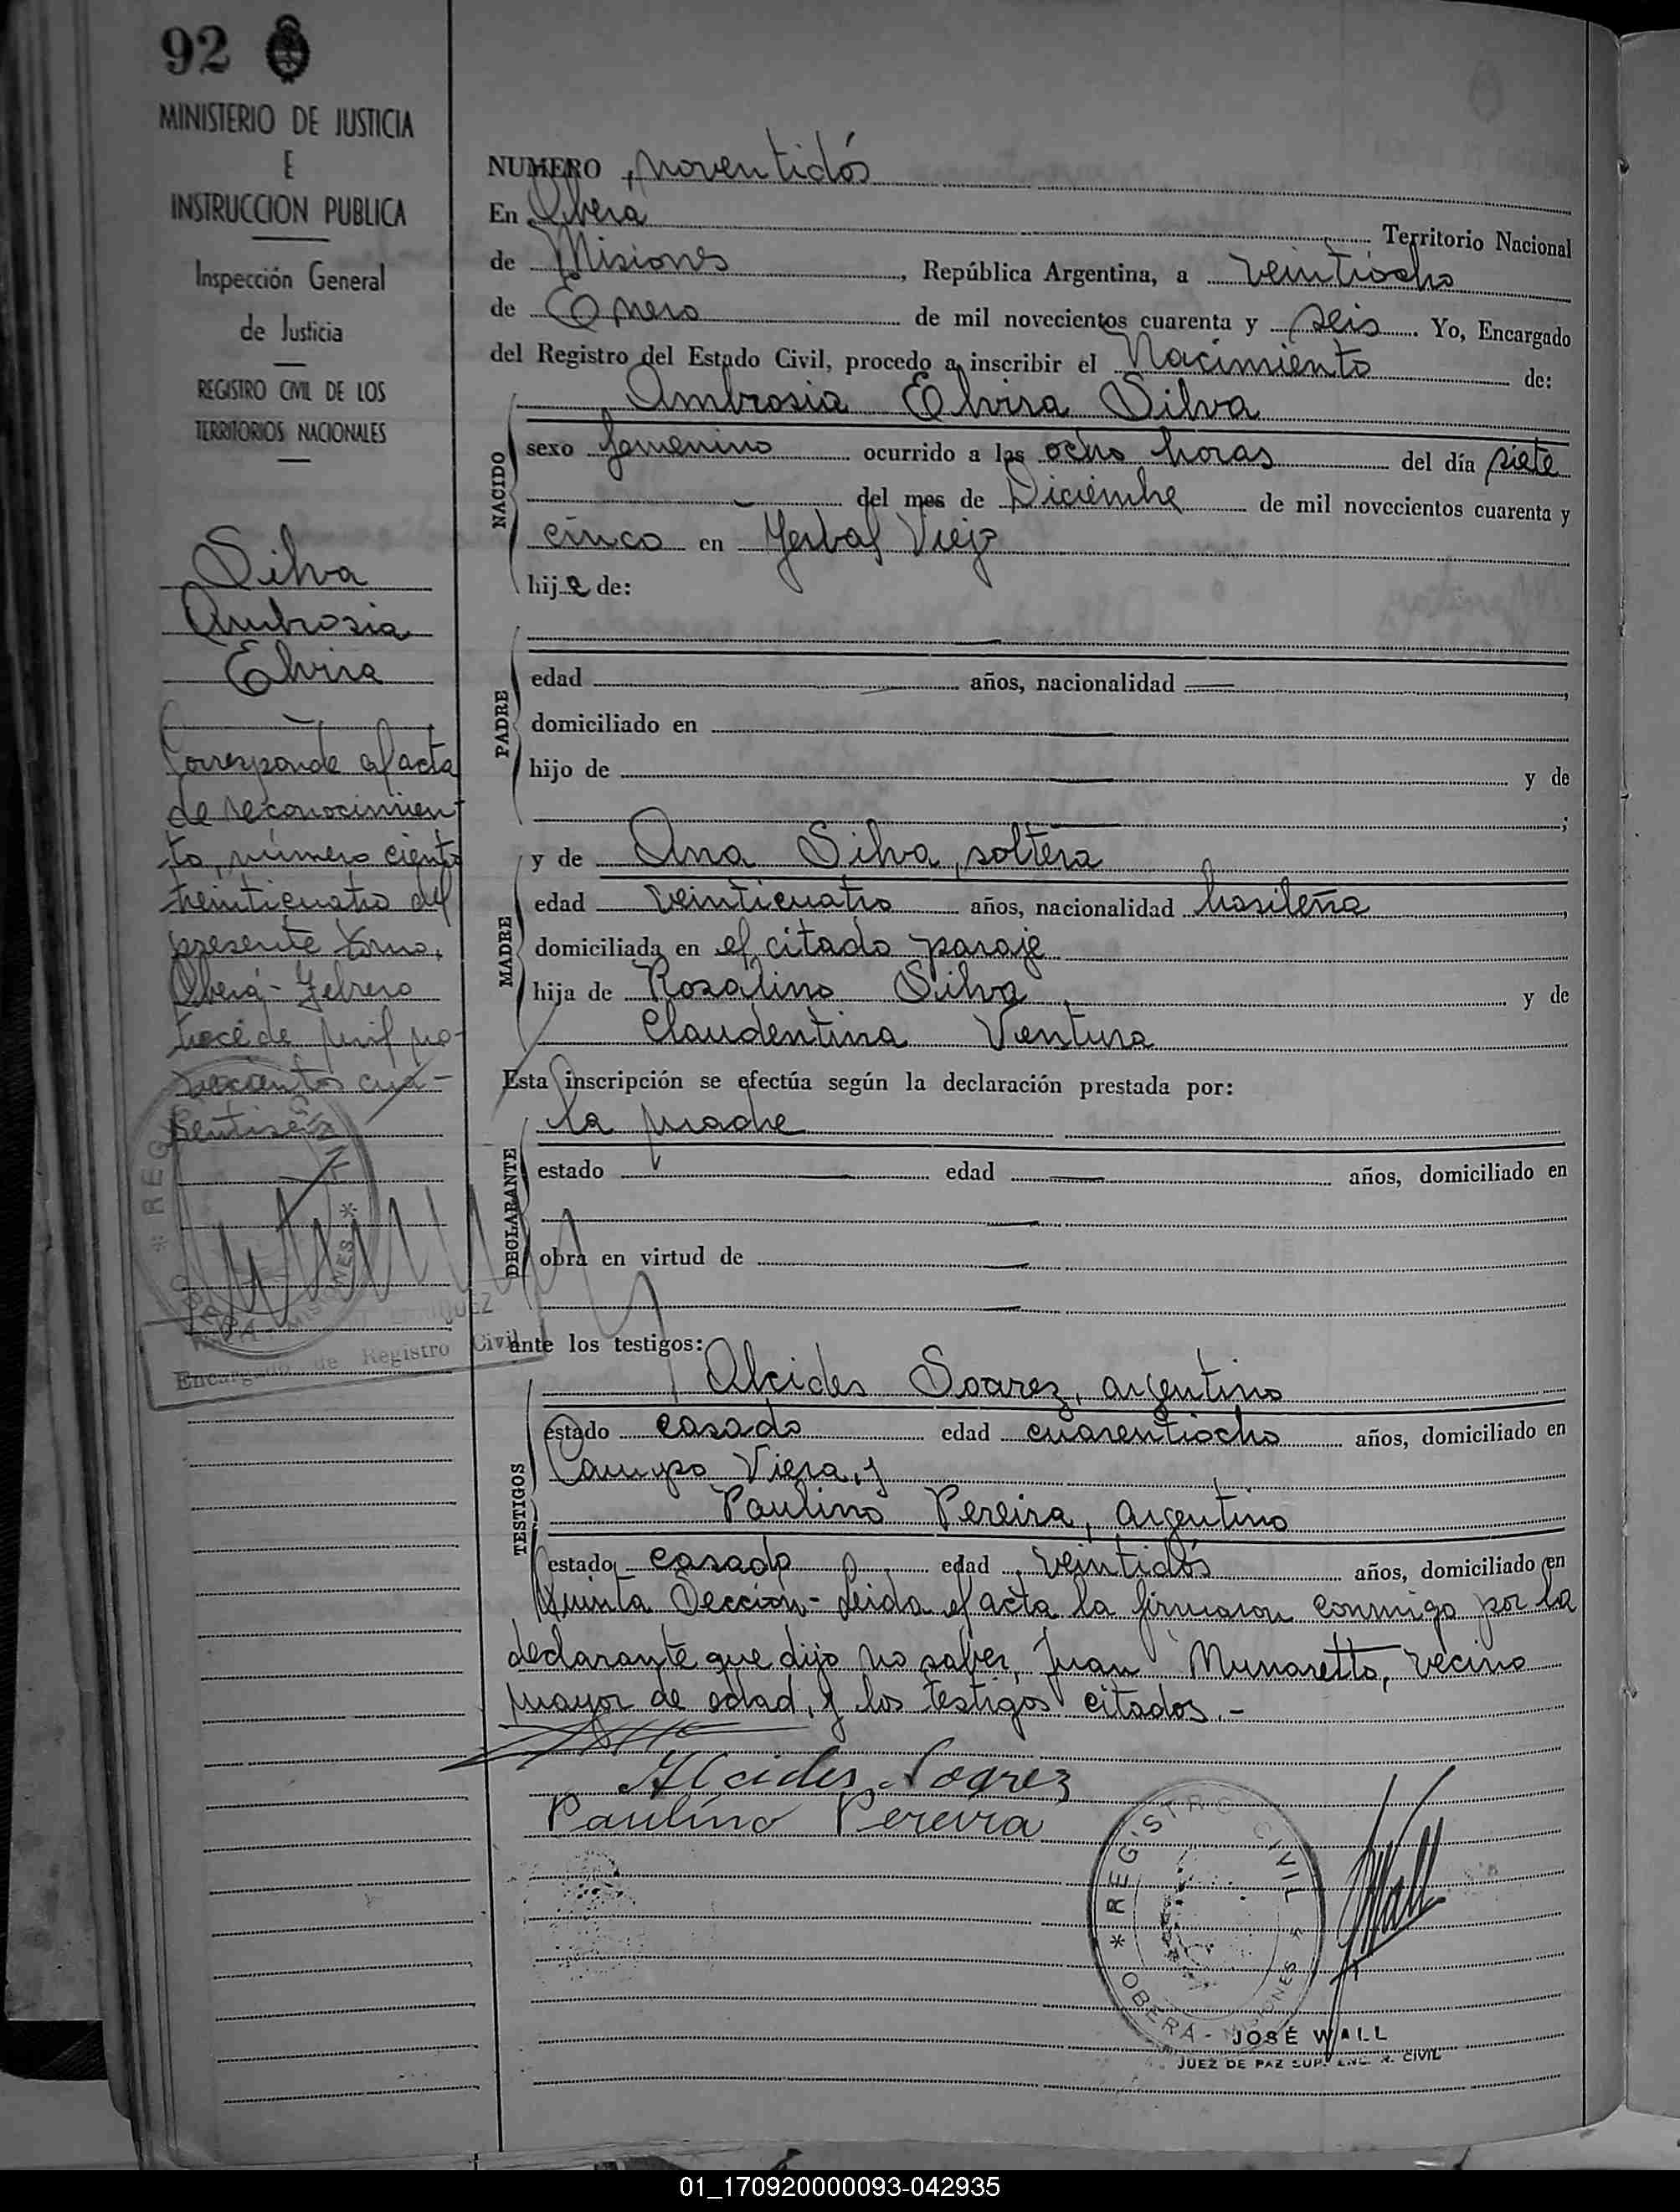 92
MINISTERIO DE JUSTICIA
E
INSTRUCCION PUBLICA
Inspección General
de Justicia
REGISTRO CIVIL DE LOS
TERRITORIOS NACIONALES
Silva
Ambrosia
Elvira
Corresponde al acta
de reconocimien-
to, número ciento
treinticuatro del
presente tomo.
Oberá - Febrero
trece de mil no-
vecientos cua-
rentiseis
* REG CIVIL *
OBERA - MISIONES
Encargado de Registro Civil
NUMERO noventidós
En Oberá Territorio Nacional
de Misiones, República Argentina, a veintiocho
de Enero de mil novecientos cuarenta y seis. Yo, Encargado
del Registro del Estado Civil, procedo a inscribir el Nacimiento de:
NACIDO
Ambrosia Elvira Silva
sexo femenino ocurrido a las ocho horas del día siete
del mes de Diciembre de mil novecientos cuarenta y
cinco en Yerbal Viejo
hija de:
PADRE
edad años, nacionalidad ,
domiciliado en
hijo de y de
;
MADRE
y de Ana Silva, soltera
edad veinticuatro años, nacionalidad brasileña,
domiciliada en el citado paraje
hija de Rosalino Silva, y de
Claudentina Ventura
Esta inscripción se efectúa según la declaración prestada por:
DECLARANTE
la madre
estado edad años, domiciliado en
obra en virtud de
ante los testigos:
TESTIGOS
Alcides Soarez, argentino
estado casado edad cuarentiocho años, domiciliado en
Campo Viera, y
Paulino Pereira, argentino
estado casado edad veintidós años, domiciliado en
Quinta Sección - Leida el acta la firmaron conmigo por la
declarante que dijo no saber, Juan Munaretto, vecino
mayor de edad, y los testigos citados.-
Alcides Soarez
Paulino Pereira
* REGISTRO CIVIL *
OBERA - MISIONES
Wall
JOSÉ WALL
JUEZ DE PAZ SUP. ENC. R. CIVIL
01_170920000093-042935